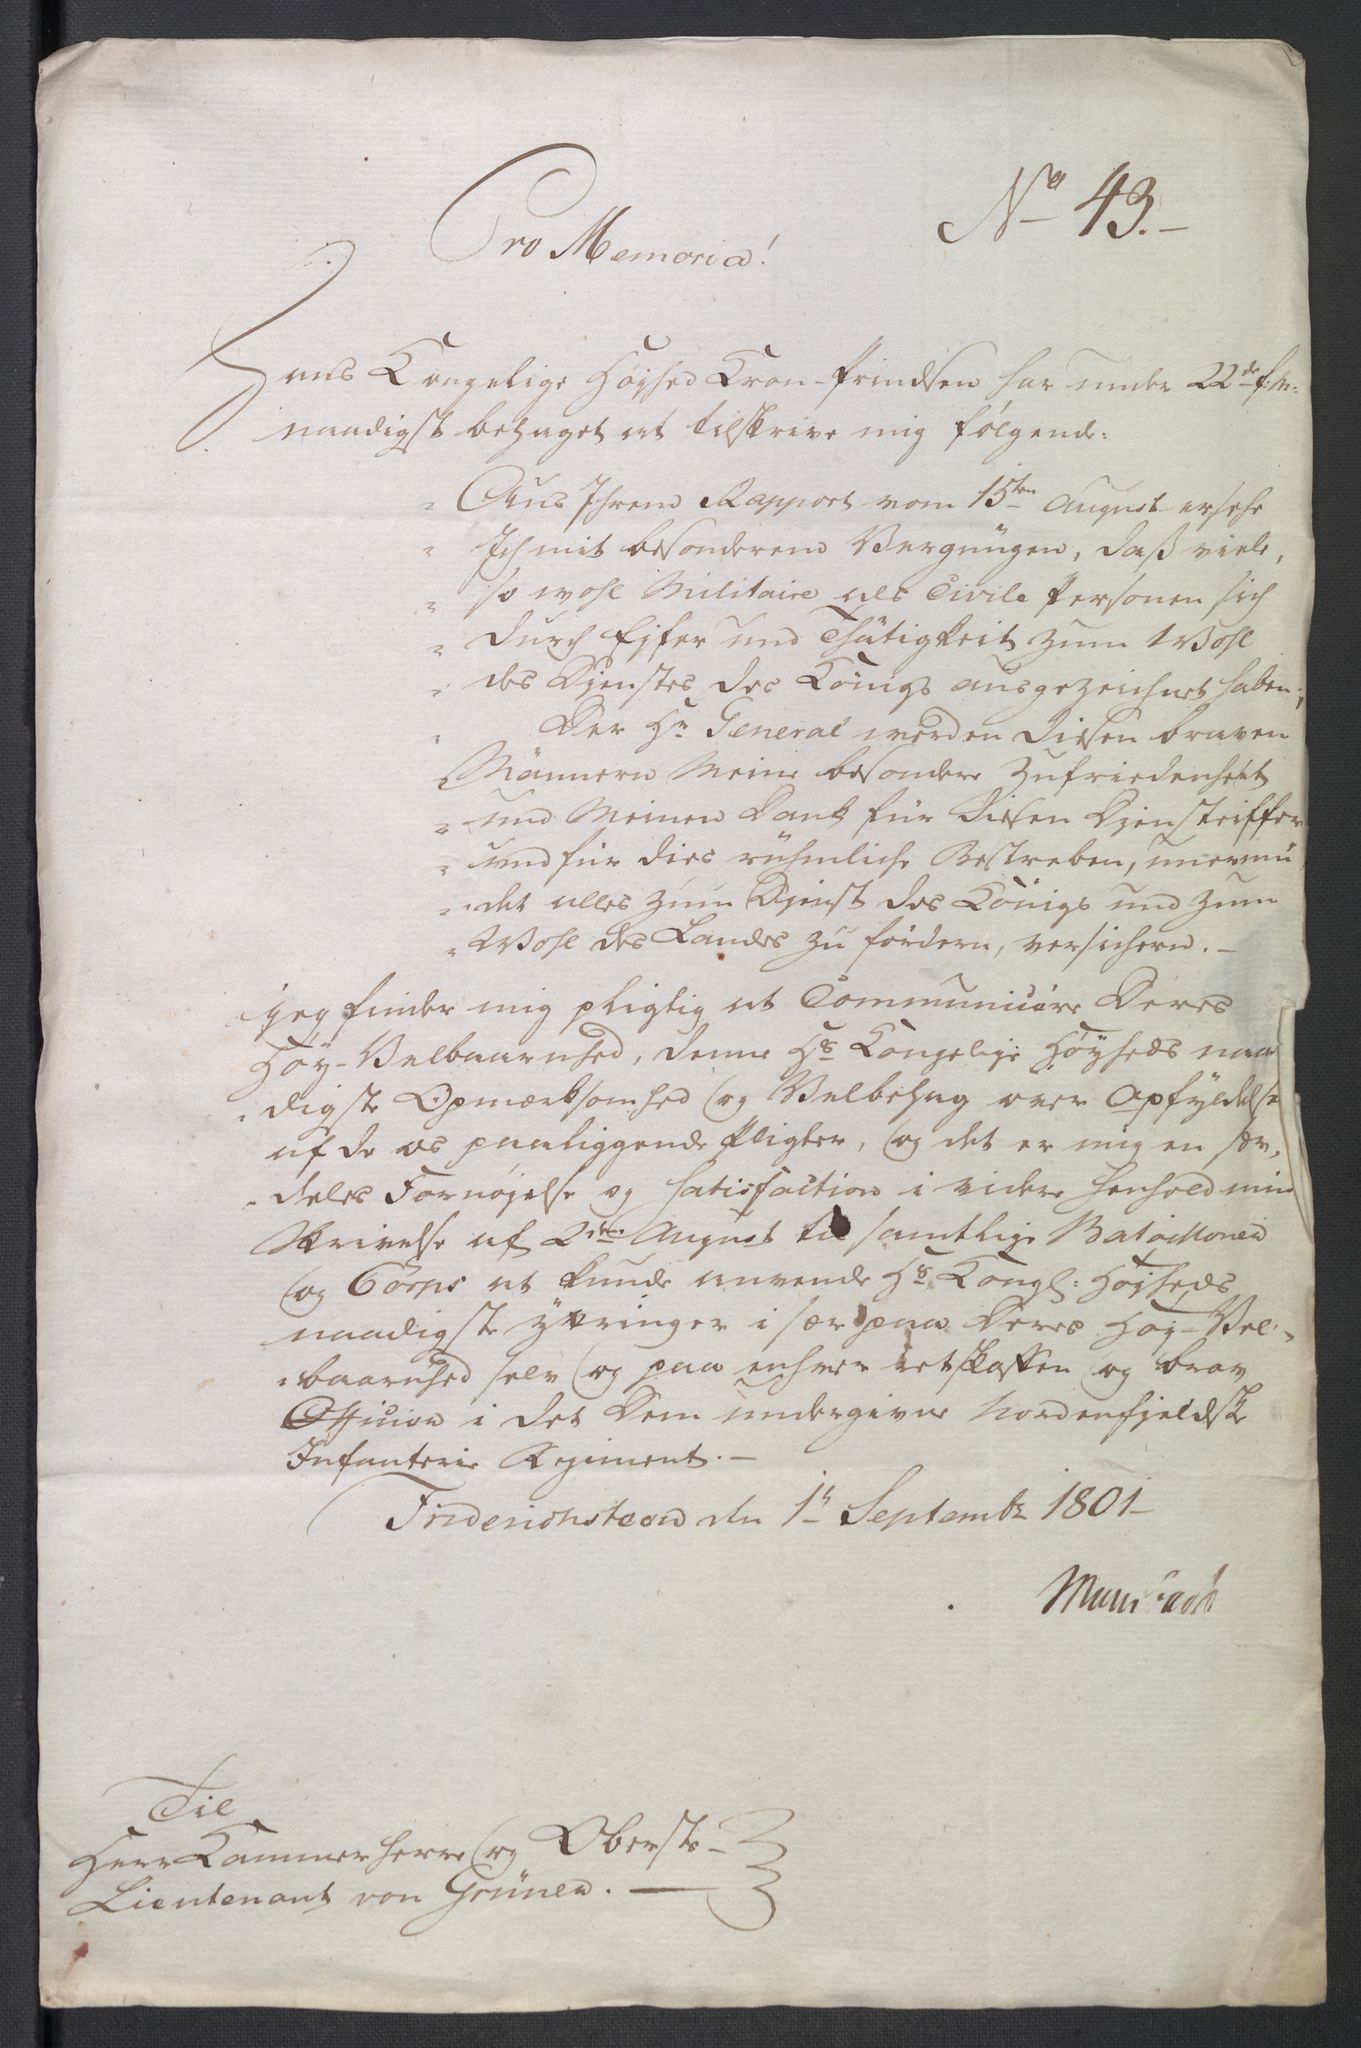 No 43.
Pro Memoria!
Hans Kongelige Høyhed Cron-Prindsen har under 22de f: M:
naadigst behaget at tilskrive mig følgende:
" Aus Ihrem Rapport vom 15ten August ersehe
" Ich mit besonderem Vergnügen, daß viele,
" so wohl Militaire als Civile Personen sich
" durch Eyfer und Thätigkeit zum Wohl
" des Dienstes des Königs ausgezeichnet haben;
" Der Hr General werden diesen braven
" Männern Meine besondere Zufriedenheit
" und Meinen Dank für diesen Diensteiffer
" und für dies rühmliche Bestreben, unermü
" det alles zum Dienst des Königs und zum
" Wohl des Landes zu fördern, versichern. —
jeg finder mig pligtig at Communicére Deres
Høy-Velbaarnhed, denne Hs Kongelige Høyheds naa
" digste Opmærksomhed og Velbehag over Opfyldelse
af de os paaliggende Pligter, og det er mig en sær,
" deles Fornøjelse og Satisfaction i videre Henhold min
Skrivelse af 2den August til samtlige Batallioner
og Corps at kunde anvende Hs Kongl: Høyheds
naadigste Yttringer i sær paa Deres Høy-Vel-
" baarnhed selv og paa enhver retskaffen og brav
Officier i det Dem undergivne Nordenfjeldske
Infanterie Regiment. —
Friderichstad den 1te Septembr 1801—
Mansbach
Til
Herr Kammerherre og Oberst-
Lieutenant von Grüner. —